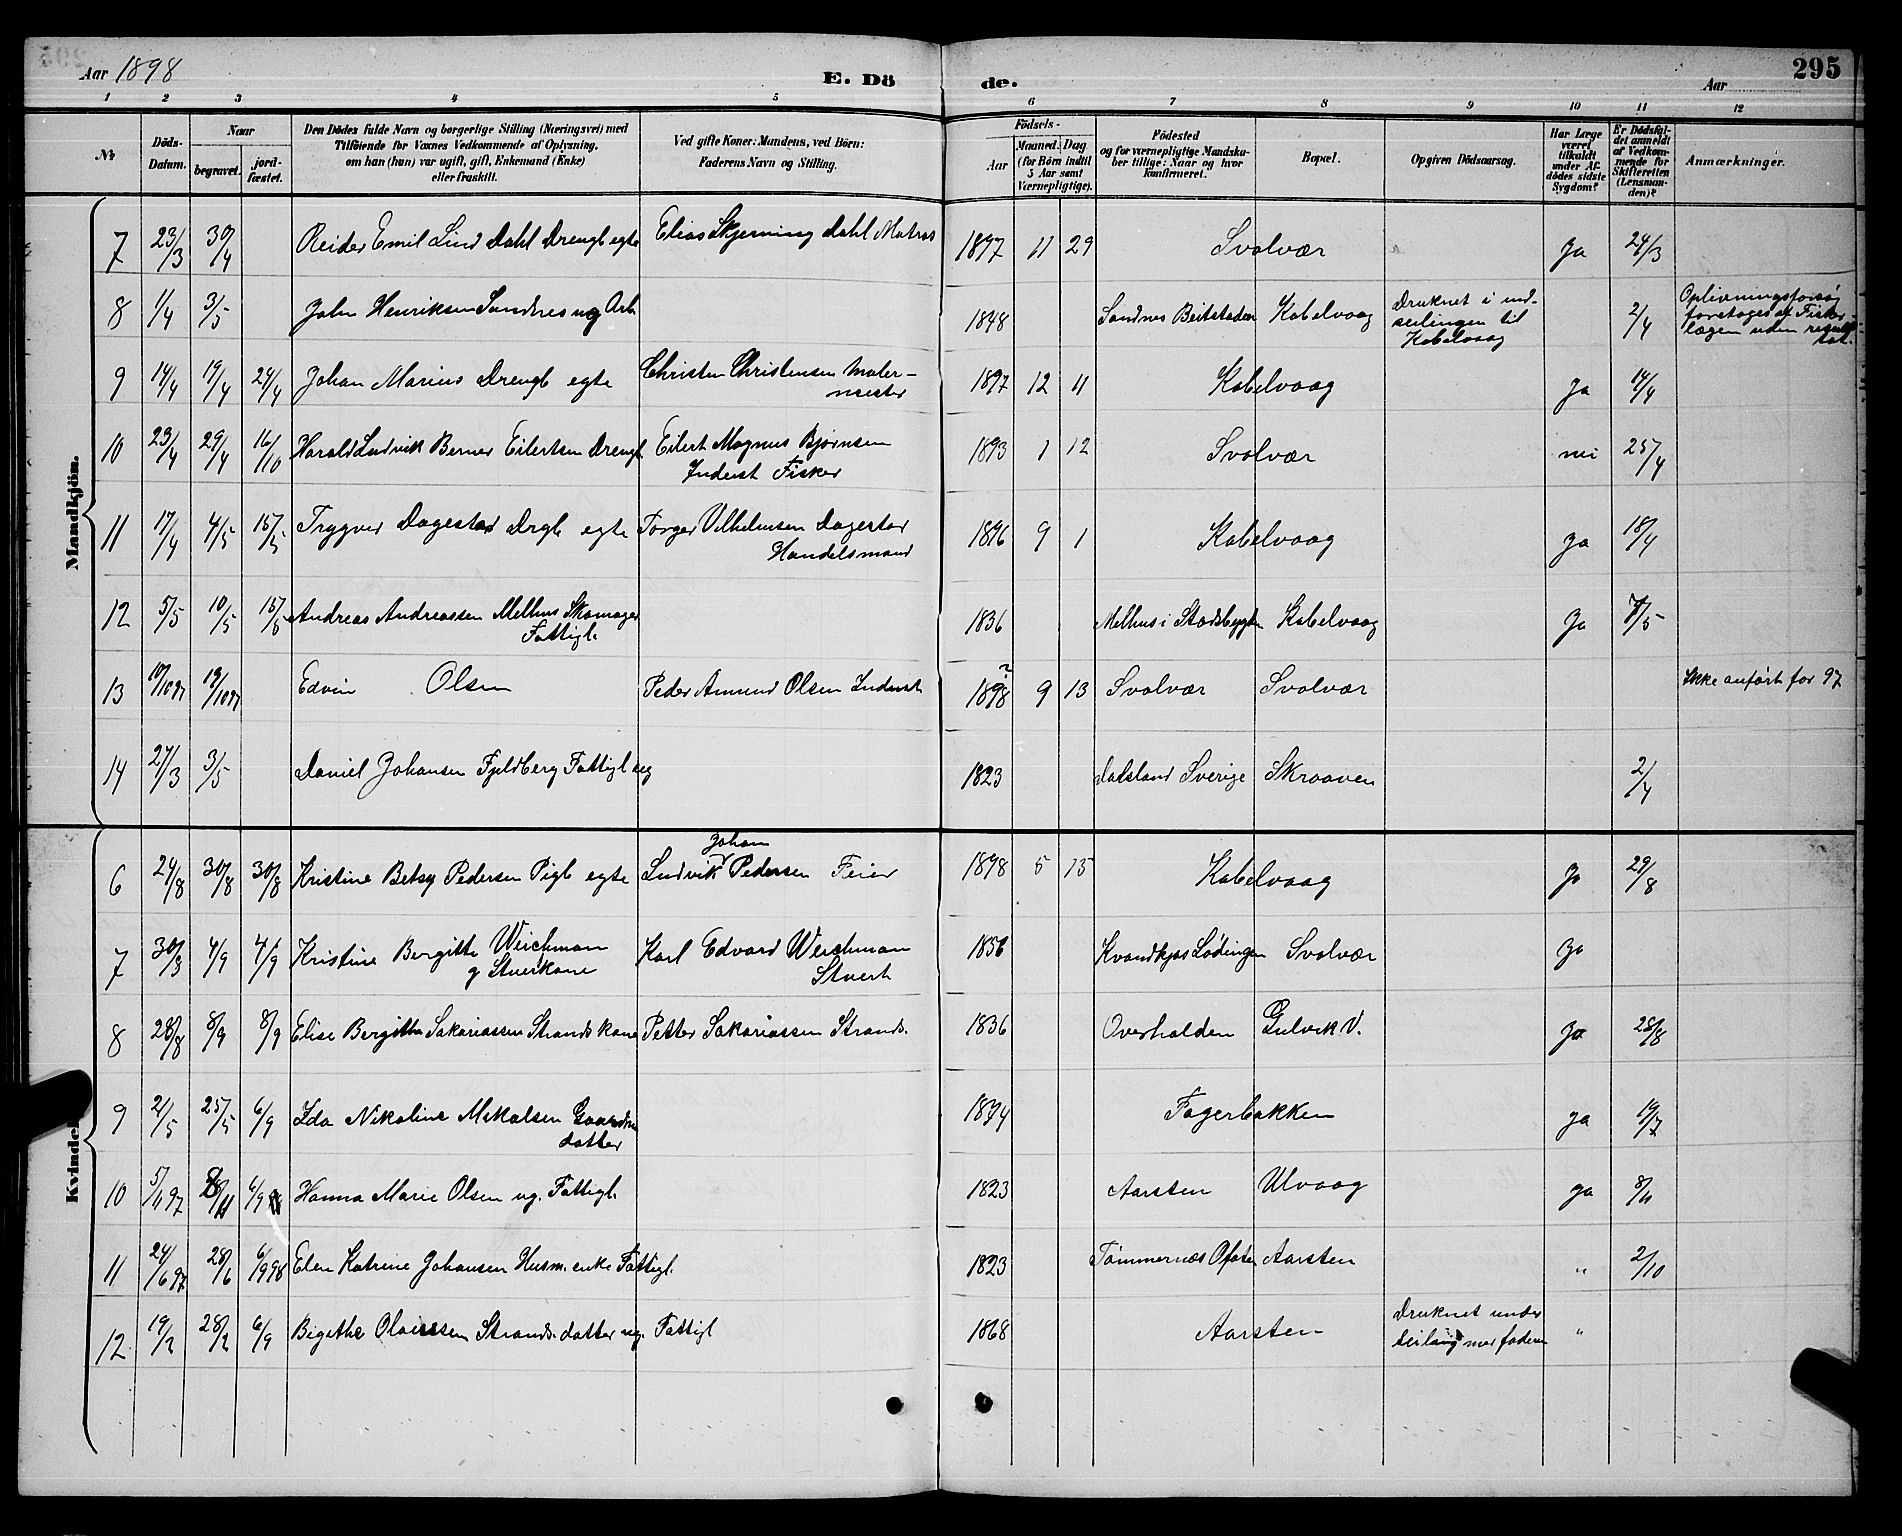 Aar 1898
E. Dö de.
Aar
295
1 2 3 4 5 6 7 8 9 10 11 12
№
Döds-Datum.
Naar
begravet.
jord-fæstet.
Den Dödes fulde Navn og borgerlige Stilling (Næringsvei) med
Tilföiende for Voxnes Vedkommende af Oplysning,
om han (hun) var ugift, gift, Enkemand (Enke)
eller fraskilt.
Ved gifte Koner: Mandens, ved Börn:
Faderens Navn og Stilling.
Födsels-
Aar
Maaned. Dag
(for Börn indtil
5 Aar samt
Værnepligtige).
Födested
og for værnepligtige Mandska-
ber tillige: Naar og hvor
konfirmeret.
Bopæl.
Opgiven Dödsaarsag.
Har Læge
været
tilkaldt
under Af-
dödes sidste
Sygdom?
Er Dödsfal-
det anmeldt
af Vedkom-
mende for
Skifteretten
(Lensman-
den)?
Anmærkninger.
Mandkjön.
7 23/3 30/4 Reider Emil Lind Dahl Drengb egte Elias Skjerning Dahl Matros 1897 11 29 Svolvær Ja 24/3
8 1/4 3/5 John Henriksen Sandnes ug Arb 1848 Sandnes Beitstaden Kabelvaag Druknet i ind-
seilingen til
Kabelvaag 2/4 Oplivningsforsøg
foretoges af Fisker-
lægen uden resul-
tat.
9 14/4 19/4 24/4 Johan Marius Drengb egte Christen Christensen Maler-
mester 1897 12 11 Kabelvaag Ja 14/4
10 23/4 29/4 16/10 Harald Ludvik Berner Eilertsen Drengb Eilert Magnus Bjørnsen
Inderst Fisker 1893 1 12 Svolvær nei 25/4
11 17/4 4/5 15/5 Trygver Dagestad Drgb egte Torger Vilhelmsen Dagestad
Handelsmand 1896 9 1 Kabelvaag Ja 18/4
12 5/5 10/5 15/5 Andreas Andreassen Melhus Skomager
Fattigl. 1836 Melhus i Stadsbygden Kabelvaag Ja 7/5
13 10/10 97 19/10 97 Edvin Olsen Peder Amund Olsen Inderst ?
1898 9 13 Svolvær Svolvær Ikke anført for 97
14 27/3 3/5 Daniel Johansen Fjeldberg Fattigl ug 1823 Dalsland Sverige Skraaven 2/4
Kvindekjön.
6 24/8 30/8 30/8 Kristine Betsy Pedersen Pigb egte Johan
Ludvik Pedersen Feier 1898 5 15 Kabelvaag Ja 29/8
7 30/8 4/9 4/9 Kristine Bergitte Weichman
g Stuerkone Karl Edvard Weichman
Stuert 1856 Kvandkjos Lødingen Svolvær Ja
8 28/8 8/9 8/9 Elise Bergitha Sakariassen Strands kone Petter Sakariassen Strands. 1836 Overhalden Gulvik V. Ja 28/8
9 21/5 25/5 6/9 Ida Nikoline Mikalsen Gaardm
datter 1874 Fagerbakken Ja 19/7
10 5/11 97 8/11 6/9 98 Hanna Marie Olsen ug. Fattigl. 1823 Aarsten Ulvaag Ja 8/11
11 24/6 97 28/6 6/9 98 Elen Katrine Johansen Husm. enke Fattigl. 1823 Tømmernæs Ofoten Aarsten " 2/10
12 19/2 28/2 6/9 Bigethe Olaissen Strands. datter ug. Fattigl 1868 Aarsten Druknet under
seilang med faderen "